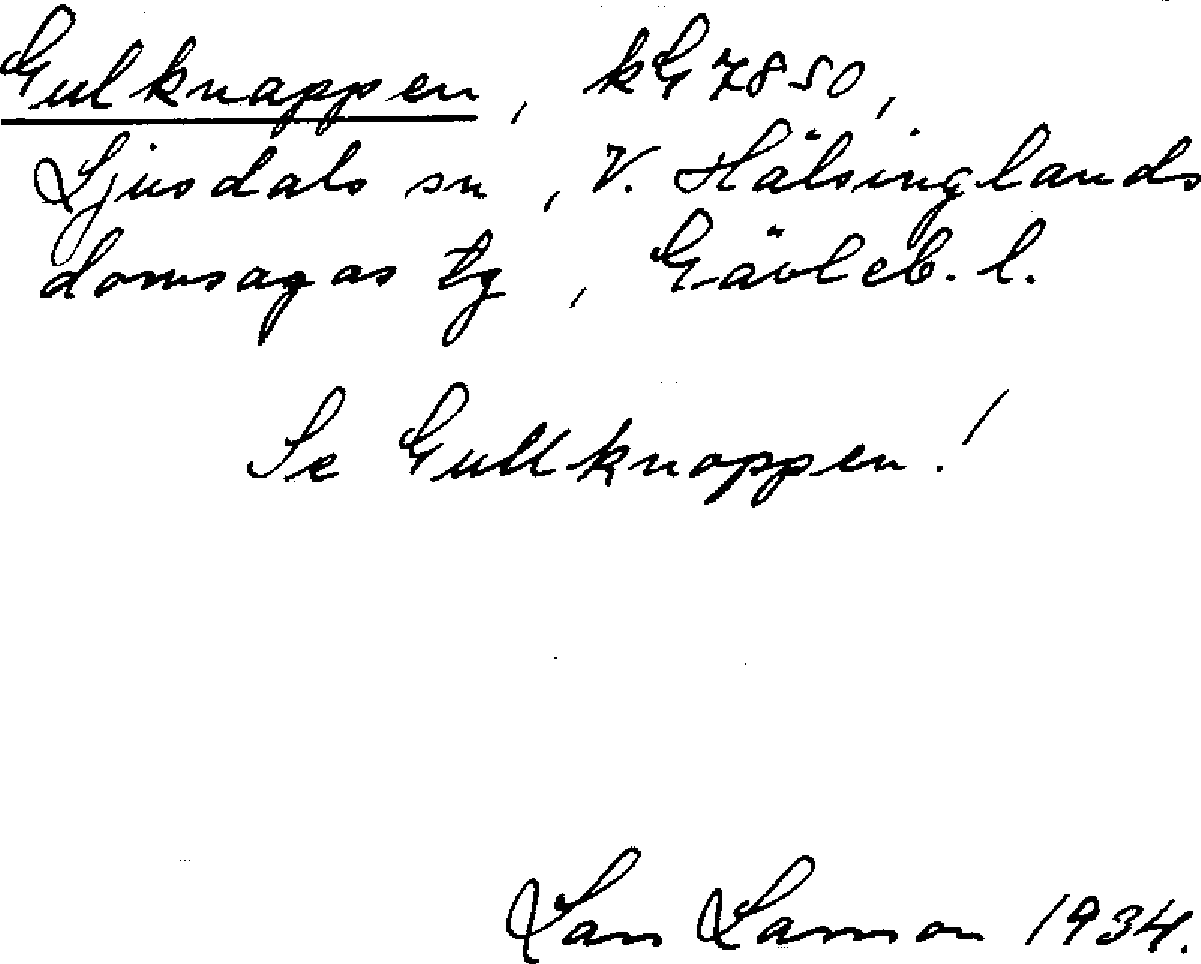 Gulknappen, kG 7850,
Ljusdals sn, V. Hälsinglands
domsagas tg, Gävleb. l.
Se Gullknoppen!
Lars Larsson 1934.